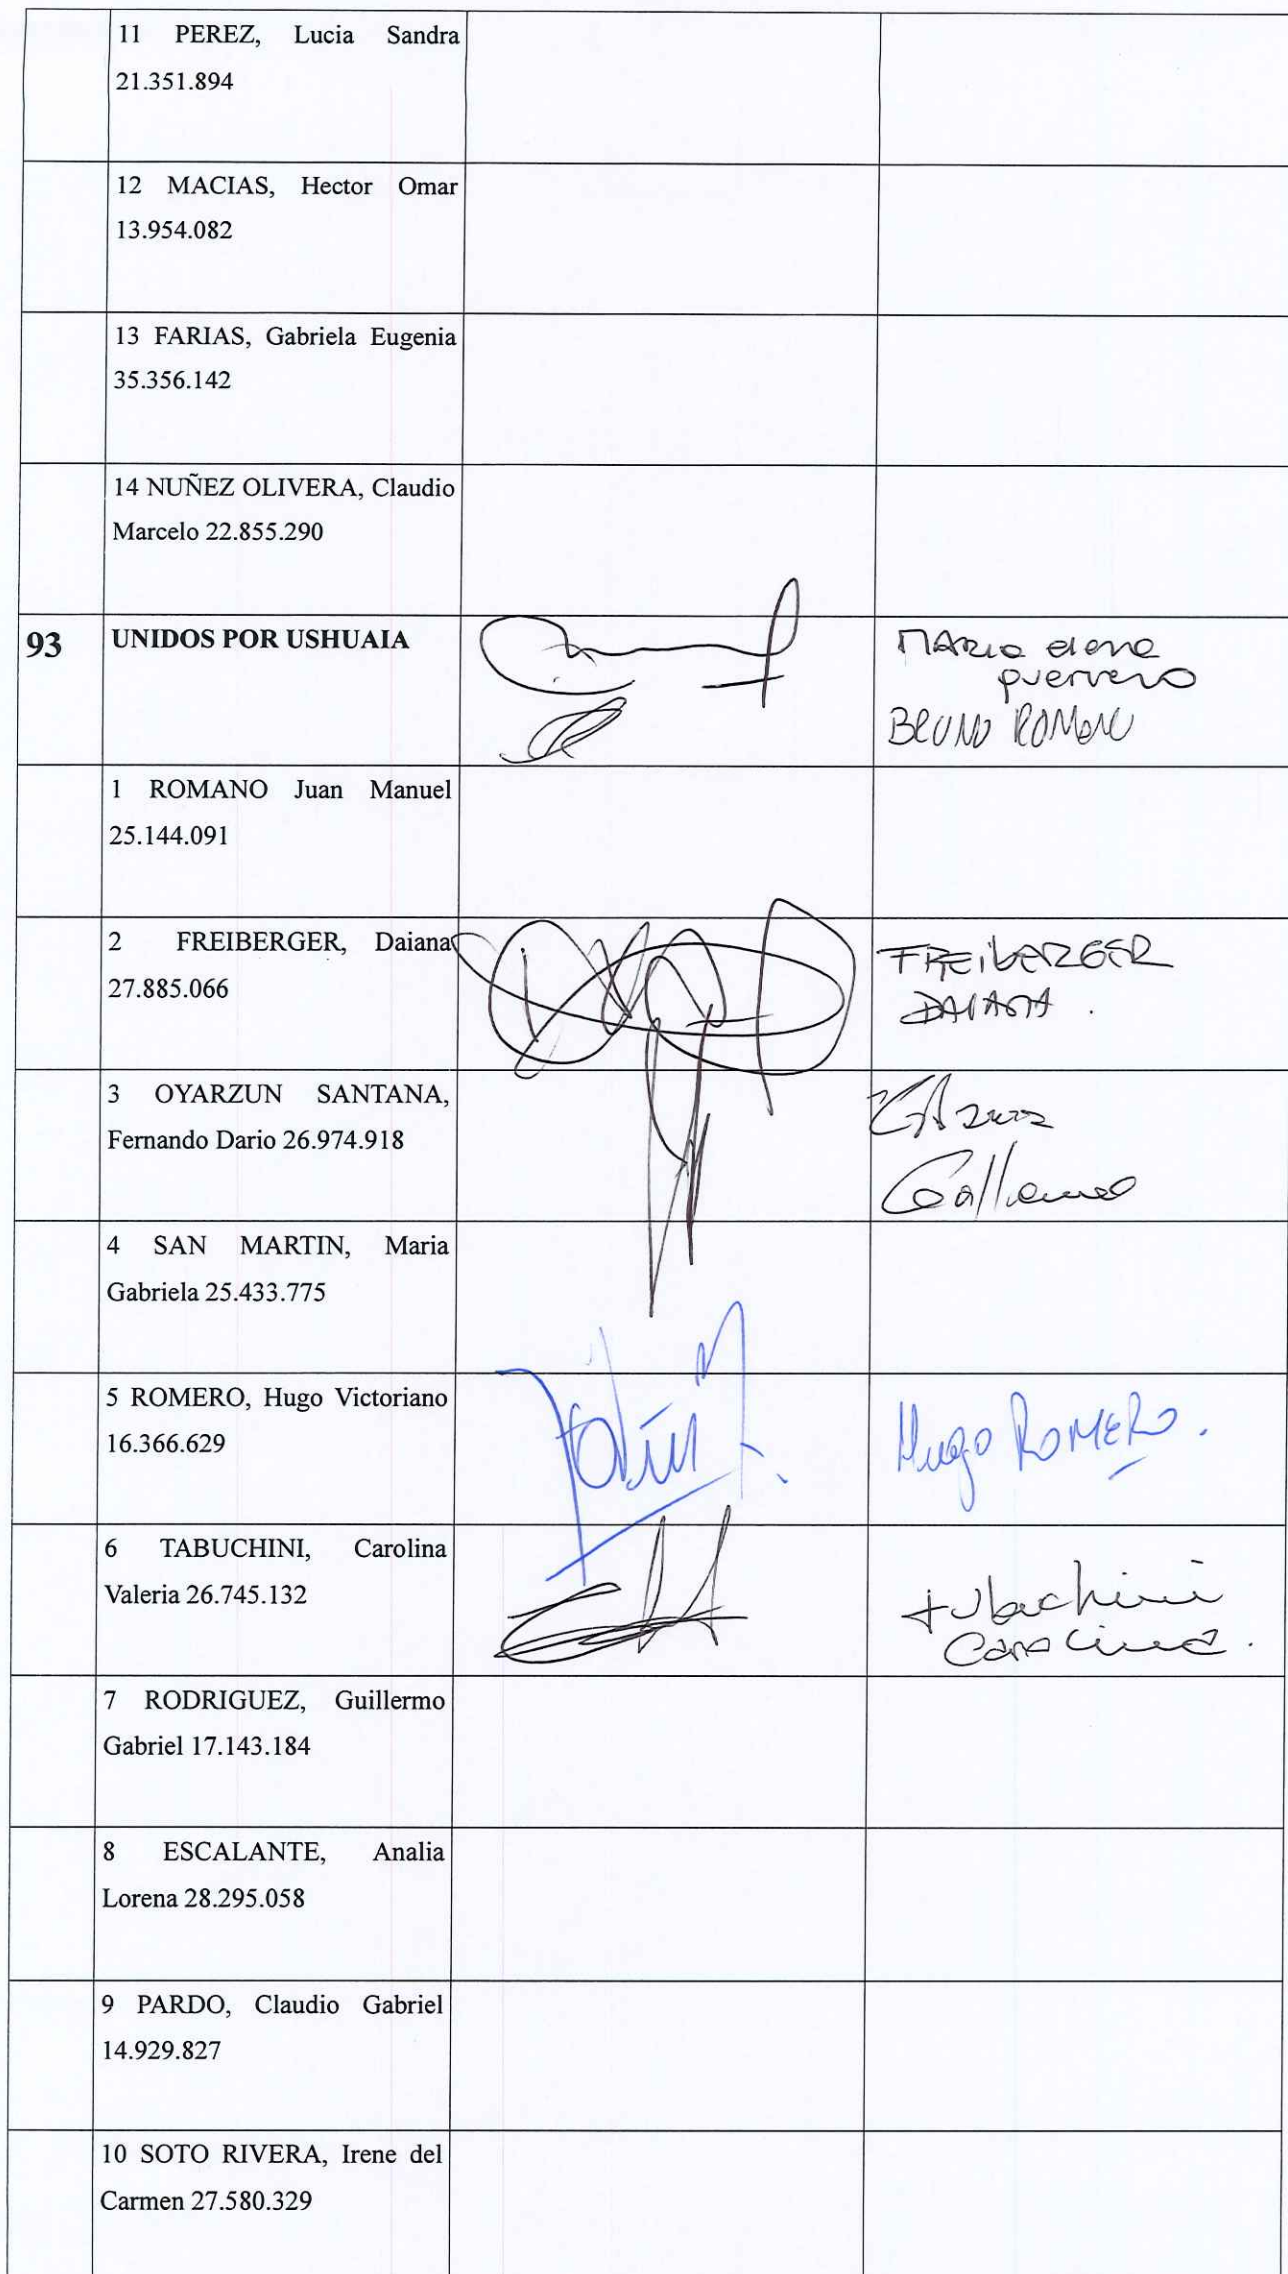 11 PEREZ, Lucia Sandra
21.351.894
12 MACIAS, Hector Omar
13.954.082
13 FARIAS, Gabriela Eugenia
35.356.142
14 NUÑEZ OLIVERA, Claudio
Marcelo 22.855.290
93 UNIDOS POR USHUAIA
MARIA elena
guerrero
BRUNO ROMANO
1 ROMANO Juan Manuel
25.144.091
2 FREIBERGER, Daiana
27.885.066
FREIBERGER
DAIANA.
3 OYARZUN SANTANA,
Fernando Dario 26.974.918
4 SAN MARTIN, Maria
Gabriela 25.433.775
5 ROMERO, Hugo Victoriano
16.366.629
Hugo ROMERO.
6 TABUCHINI, Carolina
Valeria 26.745.132
tabuchini
Carolina.
7 RODRIGUEZ, Guillermo
Gabriel 17.143.184
8 ESCALANTE, Analia
Lorena 28.295.058
9 PARDO, Claudio Gabriel
14.929.827
10 SOTO RIVERA, Irene del
Carmen 27.580.329